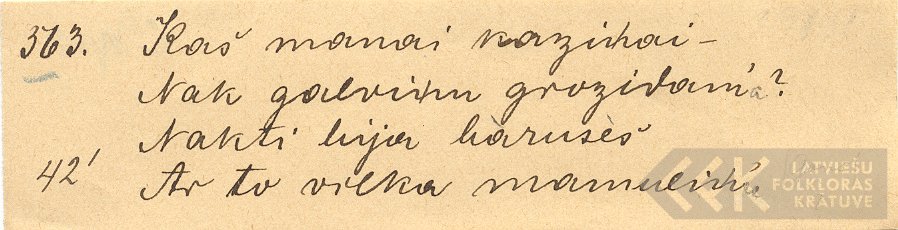 363. Kaš manai kaziņai –
Nak galviņu grozidama?
Nakti bija bàrusès
42' Ar to vilka mamuliņu
LATVIEŠU
FOLKLORAS
KRĀTUVE